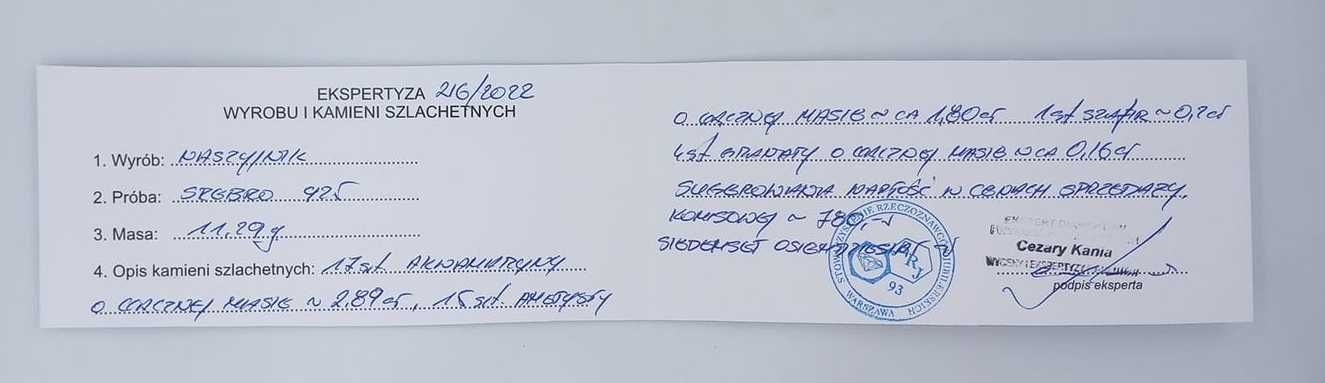 EKSPERTYZA 216/2022
WYROBU I KAMIENI SZLACHETNYCH
1. Wyrób: NASZYJNIK
2. Próba: SREBRO 925
3. Masa: 11,29 g
4. Opis kamieni szlachetnych: 17 szt AKWAMARYNY
O ŁĄCZNEJ MASIE ~ 2,89 ct, 15 szt AMETYSTY
O ŁĄCZNEJ MASIE ~ CA 1,80 ct 1 szt SZAFIR ~ 0,2 ct
4 szt GRANATY O ŁĄCZNEJ MASIE ~ CA 0,16 ct
SUGEROWANA WARTOŚĆ W CENACH SPRZEDAŻY
KOMISOWEJ ~ 780,-
SIEDEMSET OSIEMDZIESIĄT
STOWARZYSZENIE RZECZOZNAWCÓW JUBILERSKICH
SRJ
93
WARSZAWA
Cezary Kania
podpis eksperta